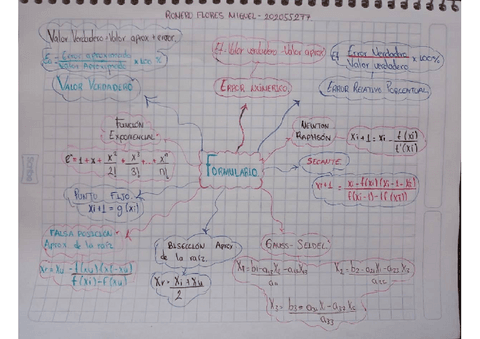 ROMERO FLORES MIGUEL - 202055277
Valor Verdadero = Valor aprox + error.
Ea = Error aproximado / Valor Aproximado x 100 %
VALOR VERDADERO
Et = Valor verdadero - Valor aprox.
ERROR NUMERICO
Et = Error Verdadero / Valor verdadero x 100%
ERROR RELATIVO PORCENTUAL
FUNCIÓN
EXPONENCIAL
e^x = 1 + x + x²/2! + x³/3! + ... + x^n/n!
NEWTON
RAPHSON
xi+1 = xi - f(xi)/f'(xi)
FORMULARIO
SECANTE
xi+1 = xi - f(xi)(xi-1 - xi) / f(xi-1) - f(xi)
PUNTO FIJO
xi+1 = g(xi)
FALSA POSICIÓN
Aprox. de la raíz.
xr = xu - f(xu)(xi - xu) / f(xi) - f(xu)
BISECCIÓN Aprox
de la raíz.
xr = xi + xu / 2
GAUSS-SEIDEL